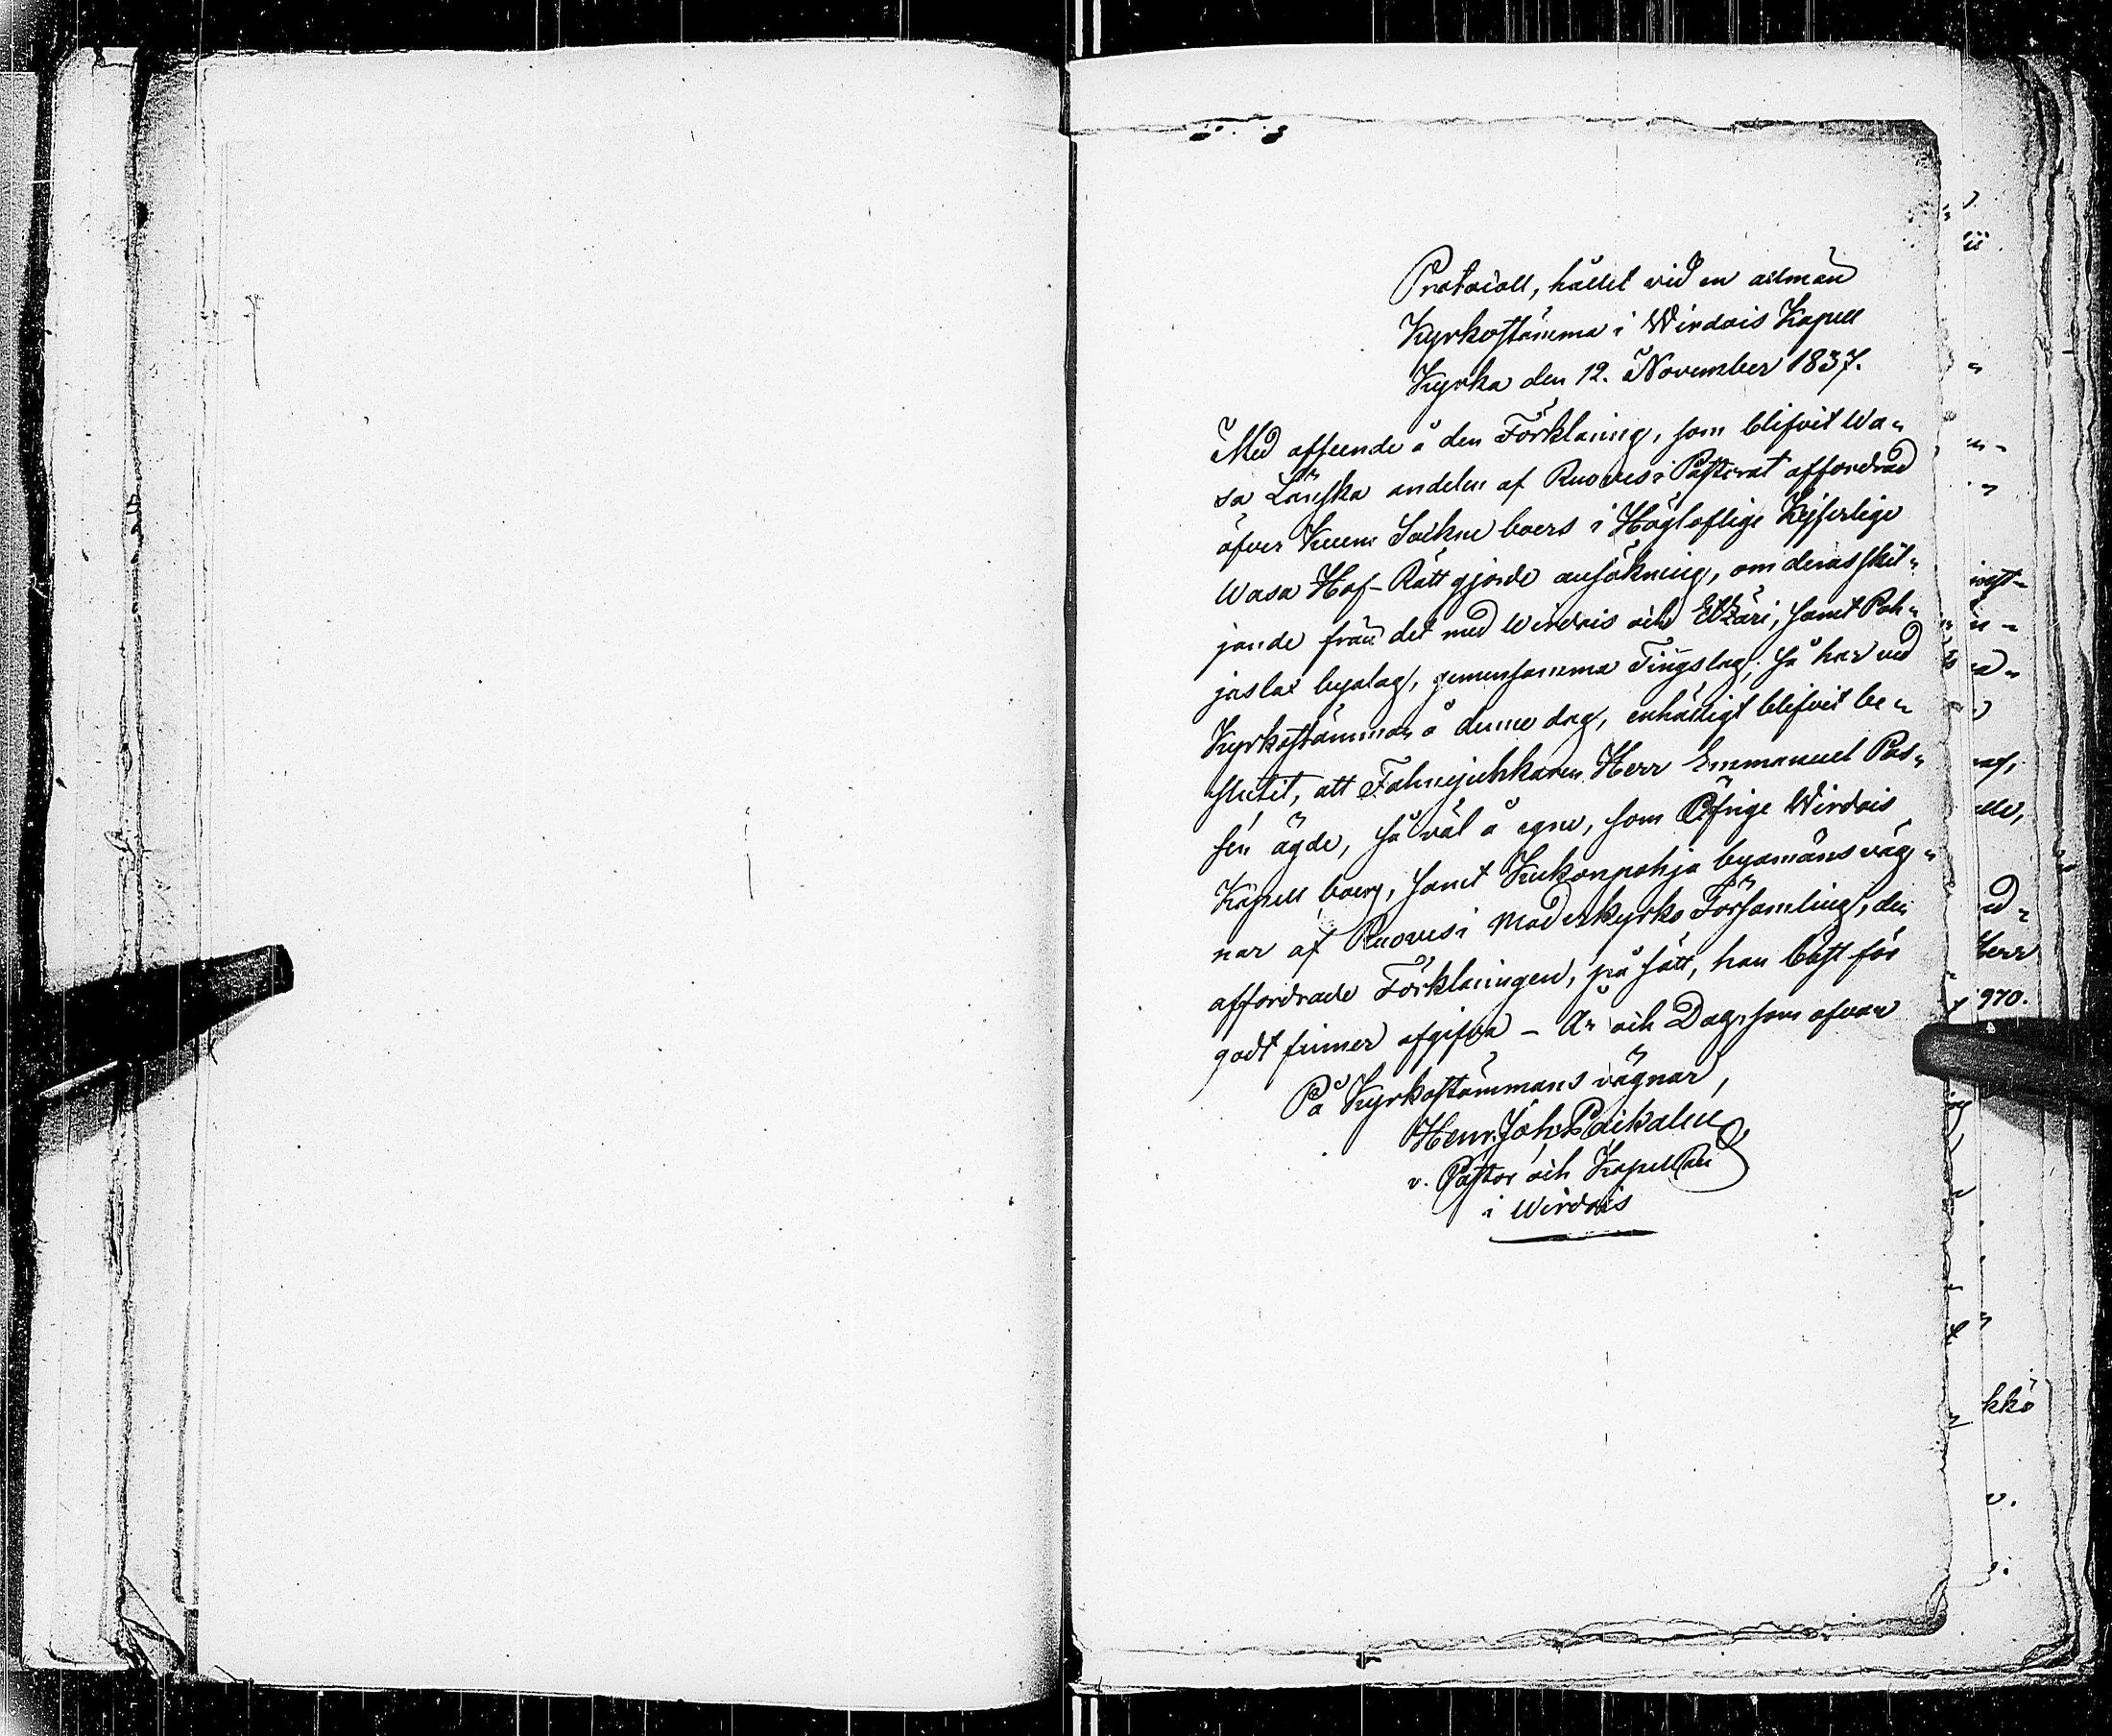 Protocoll, hållet vid en allmän
Kyrkostämma i Wirdois Kapell
Kyrka den 12. November 1837.
Med afseende å den Förklaring, som blifvit Wa„
sa Länska andelen af Ruovesi Pastorat affordrad
öfver Keuru Sockne boers i Högloflige Kejserlige
Wasa Hof-Rätt gjorde ansökning, om deras skil„
jande från det med Wirdois och Etzäri, samt Poh„
jaslax byalag, gemensamma Tingslag; så har vid
Kyrkostämman å denne dag, enhälligt blifvit be„
slutit, att Fahnejunkaren Herr Emmanuel Pos„
sén ägde, så väl å egne, som Öfrige Wirdois
Kapell boers, samt Kukonpohja byamäns väg„
nar af Ruovesi Moderkyrko Församling, den
affordrade Förklaringen, på sätt, han bäst för
godt finner afgifva - År och Dag, som ofvan
På Kyrkostämmans vägnar,
Henr. Joh. Paikalen
v. Pastor och Kapellan
i Wirdois
Herr
970.
kkö
v.